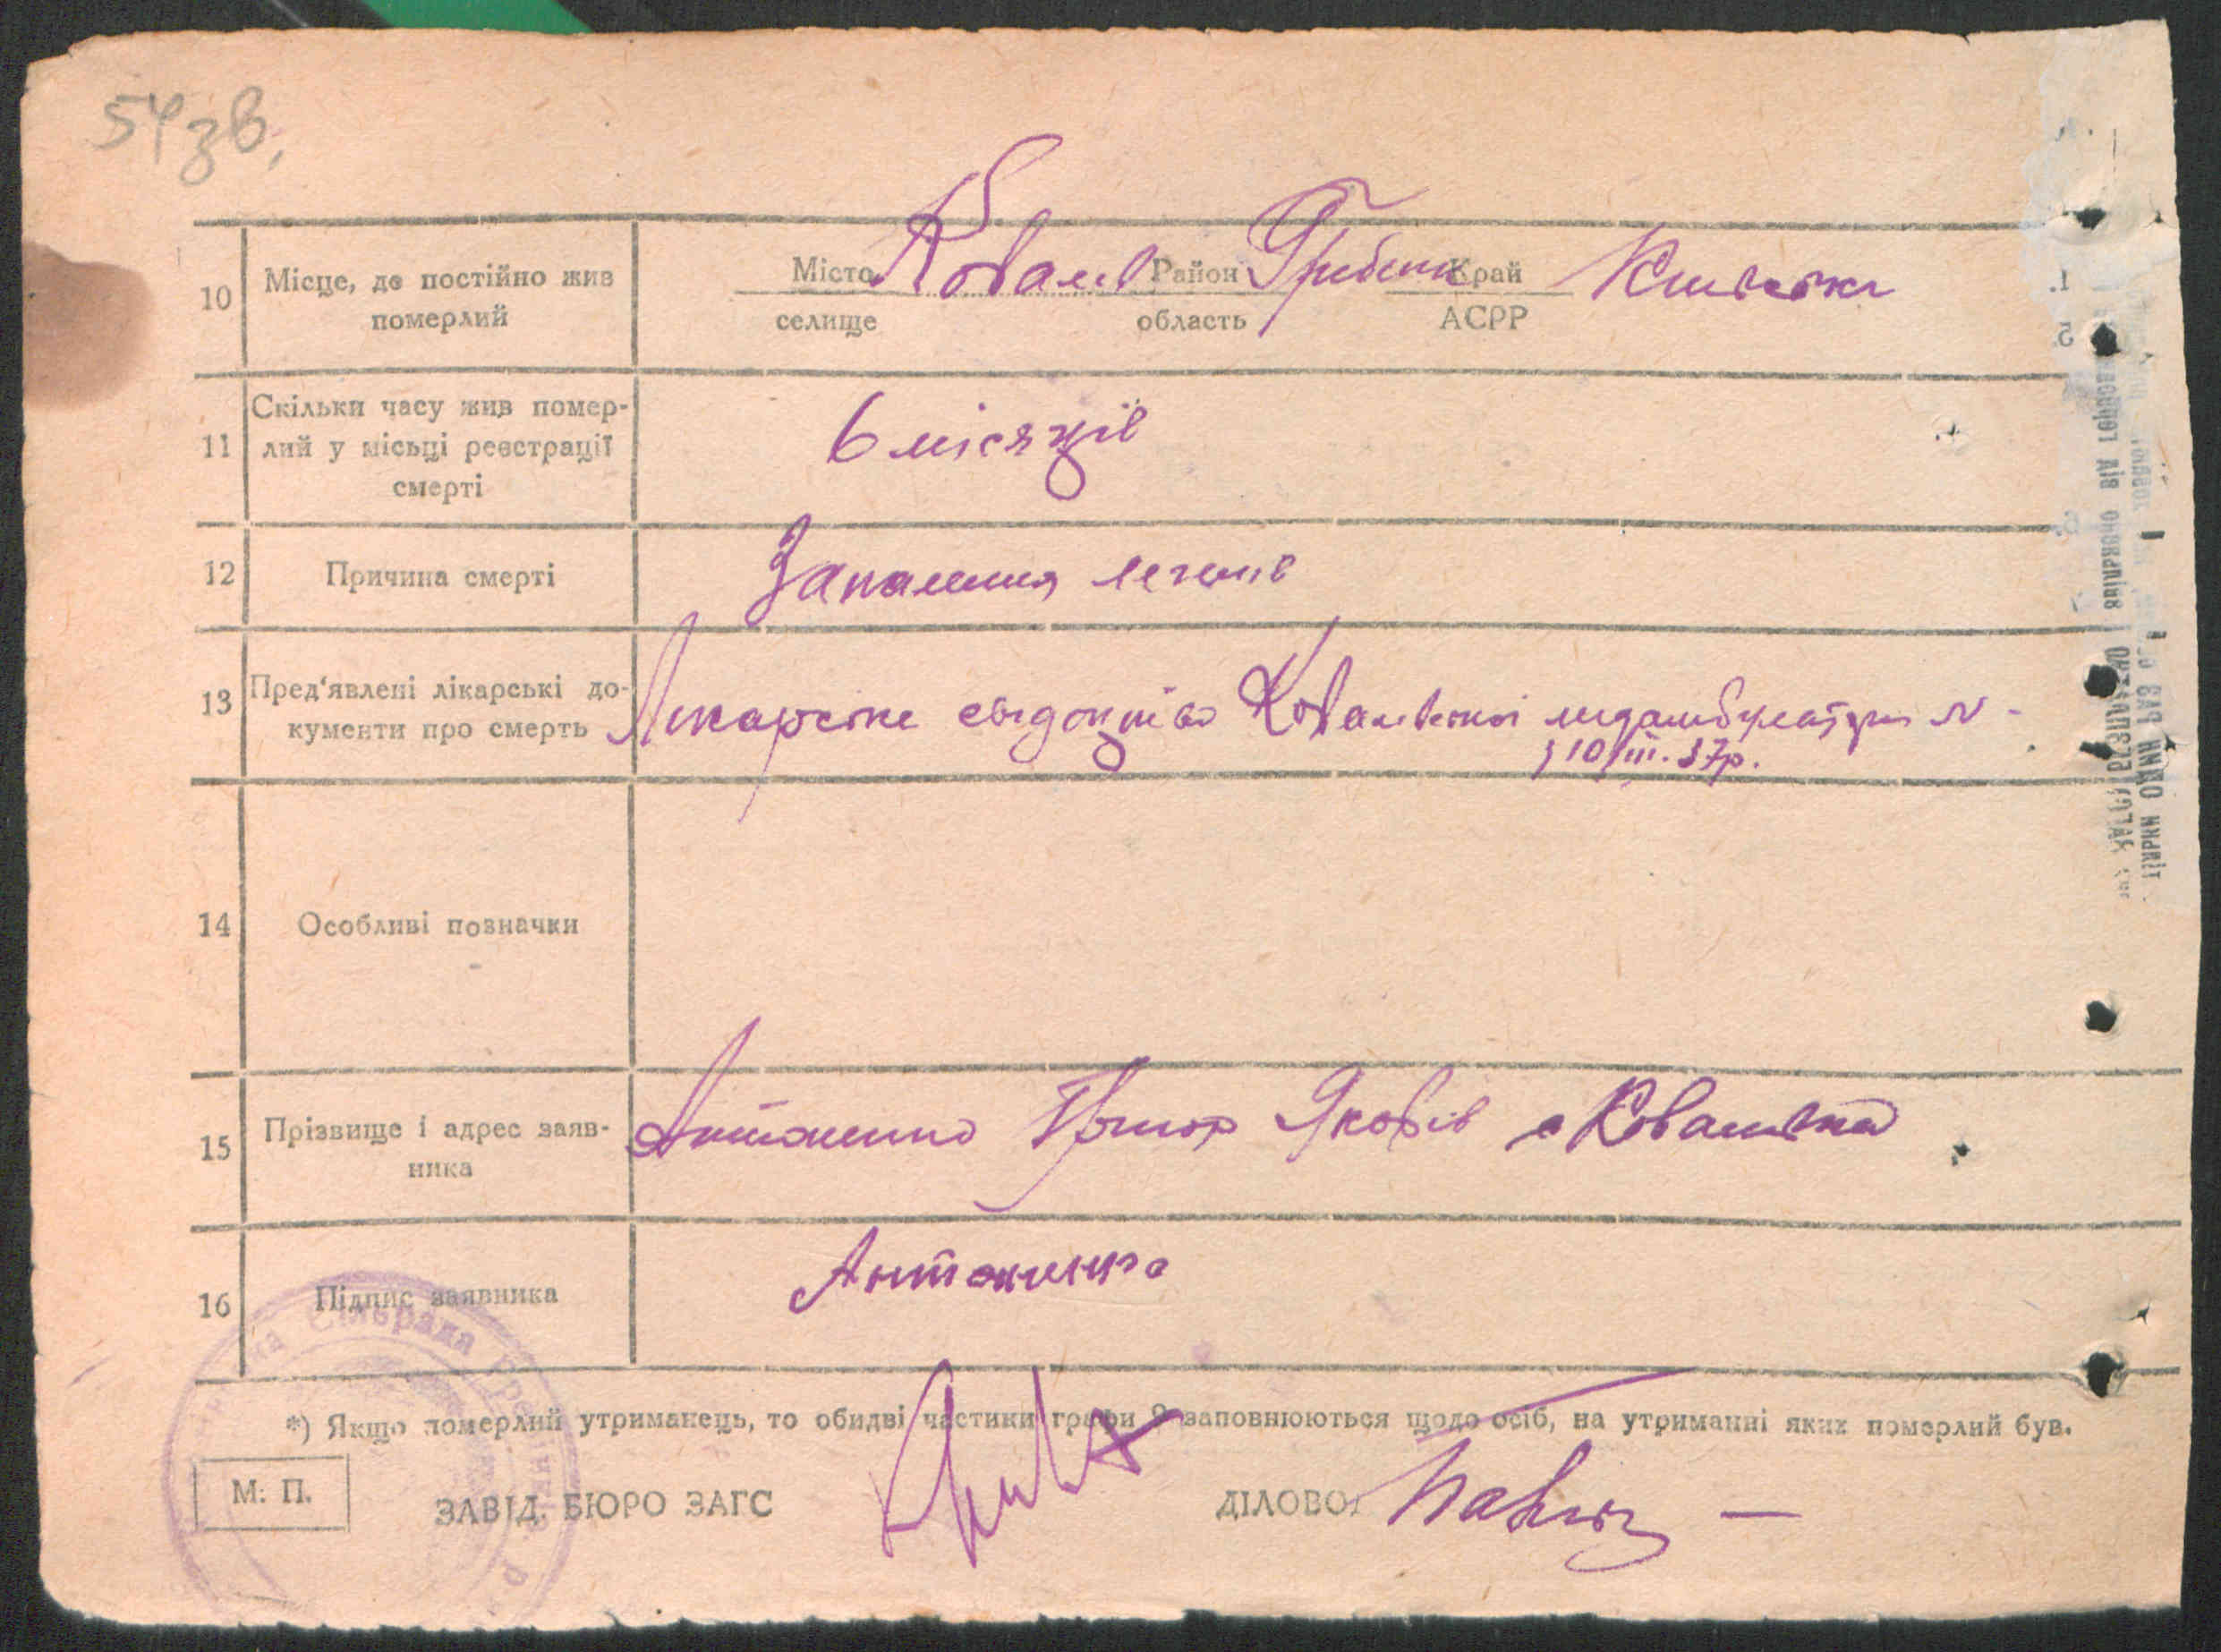 54зв,
10 Місце, де постійно жив померлий
Місто селище Ковалів Район область Гребінк Край АСРР Київська
11 Скільки часу жив помер-
лий у місьці реєстрації
смерті
6 місяців
12 Причина смерті Запалення легенів
13 Пред'явлені лікарські до-
кументи про смерть
Лікарське свідоцтво Ковалівської медамбулаторії №-
з 10/III.37р.
14 Особливі позначки
15 Прізвище і адрес заяв-
ника
Антоненко Яковів с Ковалівка
16 Підпис заявника Антоненко
Сільрада
*) Якщо померлий утриманець, то обидві частини графи 9 заповнюються щодо осіб, на утриманні яких померлий був.
М. П.
ЗАВІД. БЮРО ЗАГС
ДІЛОВОД